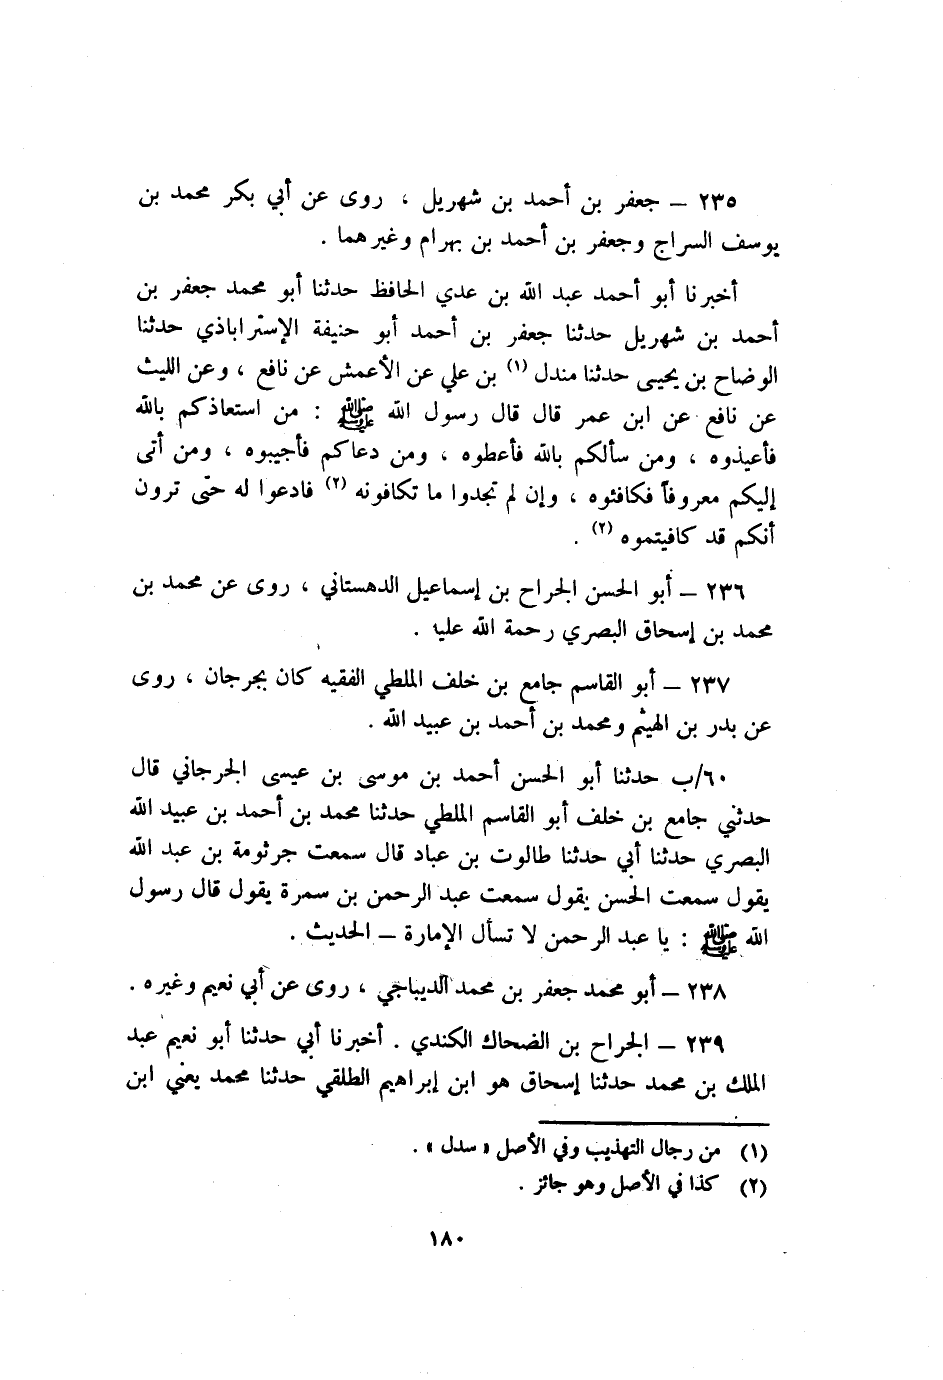 ٢٣٥ – جعفر بن أحمد بن شهريل ، روى عن أبي بكر محمد بن
يوسف السراج وجعفر بن أحمد بن بهرام وغيرهما .
أخبرنا أبو أحمد عبد الله بن عدي الحافظ حدثنا أبو محمد جعفر بن
أحمد بن شهريل حدثنا جعفر بن أحمد أبو حنيفة الإستراباذي حدثنا
الوضاح بن يحيى حدثنا مندل (١) بن علي عن الأعمش عن نافع ، وعن الليث
عن نافع عن ابن عمر قال قال رسول الله ﷺ : من استعاذكم بالله
فأعيذوه ، ومن سألكم بالله فأعطوه ، ومن دعاكم فأجيبوه ، ومن أتى
إليكم معروفاً فكافئوه ، وإن لم تجدوا ما تكافونه (٢) فادعوا له حتّى ترون
أنكم قد كافيتموه (٢) .
٢٣٦ – أبو الحسن الجراح بن إسماعيل الدهستاني ، روى عن محمد بن
محمد بن إسحاق البصري رحمة الله عليه .
٢٣٧ – أبو القاسم جامع بن خلف الملطي الفقيه كان بجرجان ، روى
عن بدر بن الهيثم ومحمد بن أحمد بن عبيد الله .
٦٠/ب حدثنا أبو الحسن أحمد بن موسى بن عيسى الجرجاني قال
حدثني جامع بن خلف أبو القاسم الملطي حدثنا محمد بن أحمد بن عبيد الله
البصري حدثنا أبي حدثنا طالوت بن عباد قال سمعت جرثومة بن عبد الله
يقول سمعت الحسن يقول سمعت عبد الرحمن بن سمرة يقول قال رسول
الله ﷺ : يا عبد الرحمن لا تسأل الإمارة – الحديث .
٢٣٨ – أبو محمد جعفر بن محمد الديباجي ، روى عن أبي نعيم وغيره .
٢٣٩ – الجراح بن الضحاك الكندي . أخبرنا أبي حدثنا أبو نعيم عبد
الملك بن محمد حدثنا إسحاق هو ابن إبراهيم الطلقي حدثنا محمد يعني ابن
(١) من رجال التهذيب وفي الأصل « سدل » .
(٢) كذا في الأصل وهو جائز .
١٨٠